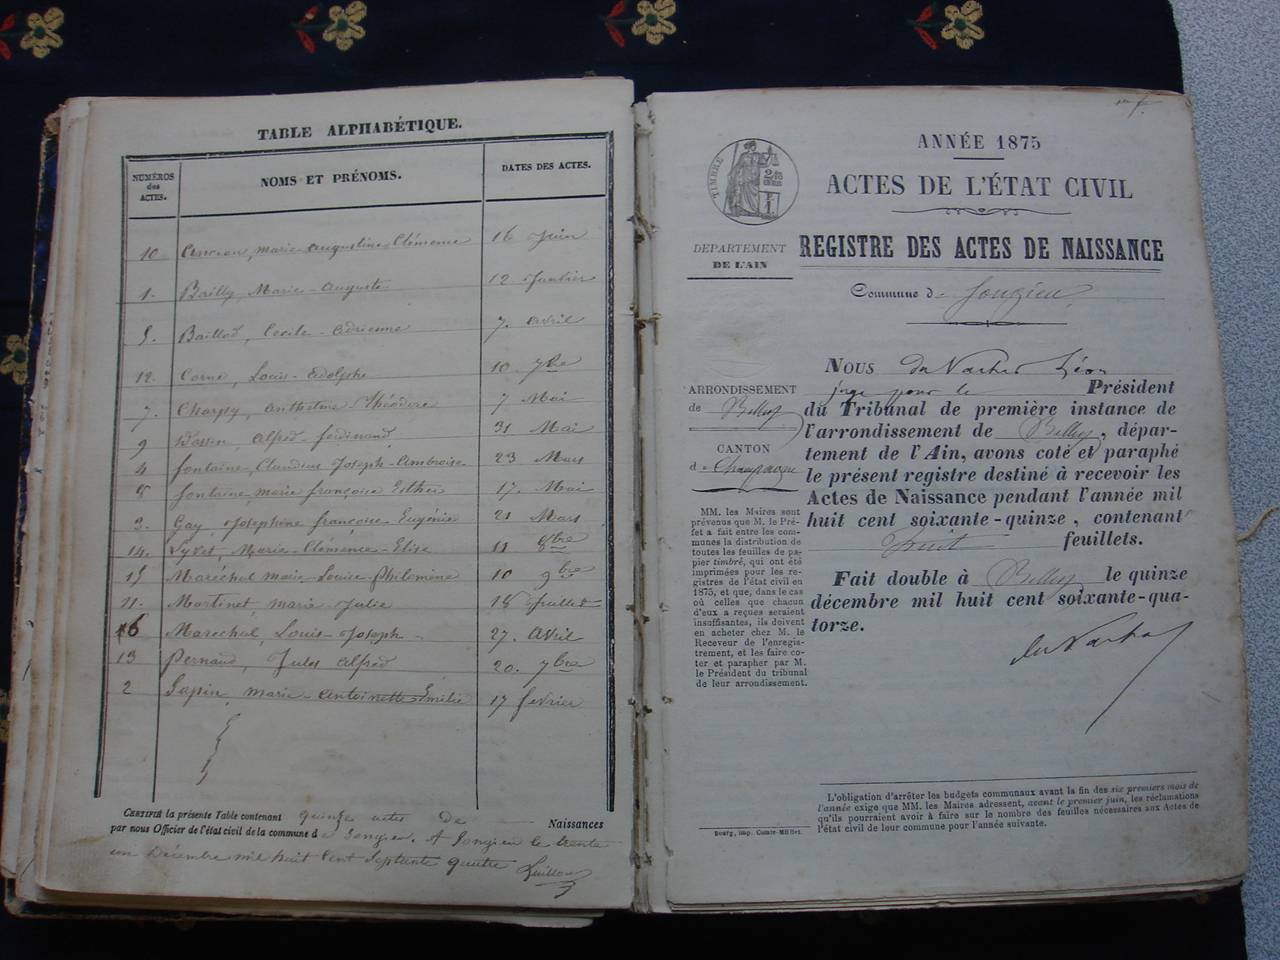 TABLE ALPHABÉTIQUE.
NUMÉROS des ACTES. NOMS ET PRÉNOMS. DATES DES ACTES.
10 Ancian, marie augustine Clémence 16 Juin
1. Bailly Marie-Auguste 12 Janvier
5. Baillod, Cecile-Adrienne 7. avril
12. Corne, Louis-Adolphe 10 7bre
7. Charpy, Anthelme Théodore 7 Mai
9 Alfred-ferdinand, 31 Mai
4 fontaine, Claudius Joseph-Ambroise 23 Mars
8 fontaine, marie françoise Esther 17. Mai
3. Gay, Josephine françoise-Eugénie 21 Mars
14. Lyvet, Marie-Clémence-Elise 11 8bre
15 Maréchal marie-Louise-Philomène 10 9bre
11. Martinet, marie-Julie 18 Juillet
6 Maréchal, Louis-Joseph 27. Avril
13 Pernaud, Jules Alfred 20. 7bre
2 Sapin, marie-Antoinette-Emilie 17 fevrier
CERTIFIÉ la présente Table contenant quinze actes de Naissances
par nous Officier de l'état civil de la commune de Songieu. A Songieu le trente
un Décembre mil huit Cent Septante quatre
ANNÉE 1875
TIMBRE
ACTES DE L'ÉTAT CIVIL
DEPARTEMENT
DE L'AIN
REGISTRE DES ACTES DE NAISSANCE
Commune d Songieu
ARRONDISSEMENT
de Belley
CANTON
d Champagne
MM. les Maires sont
prévenus que M. le Pré-
fet a fait entre les com-
munes la distribution de
toutes les feuilles de pa-
pier timbré, qui ont été
imprimées pour les re-
gistres de l'état civil en
1875, et que, dans le cas
où celles que chacun
d'eux a reçues seraient
insuffisantes, ils doivent
en acheter chez M. le
Receveur de l'enregis-
trement, et les faire co-
ter et parapher par M.
le Président du tribunal
de leur arrondissement.
NOUS Léon
juge pour le Président
du Tribunal de première instance de
l'arrondissement de Belley, dépar-
tement de l'Ain, avons coté et paraphé
le présent registre destiné à recevoir les
Actes de Naissance pendant l'année mil
huit cent soixante-quinze, contenant
huit feuillets.
Fait double à Belley le quinze
décembre mil huit cent soixante-qua-
torze.
L'obligation d'arrêter les budgets communaux avant la fin des six premiers mois de
l'année exige que MM. les Maires adressent, avant le premier juin, les réclamations
qu'ils pourraient avoir à faire sur le nombre des feuilles nécessaires aux Actes de
l'état civil de leur commune pour l'année suivante.
Bourg, imp. Comte-Milliet.